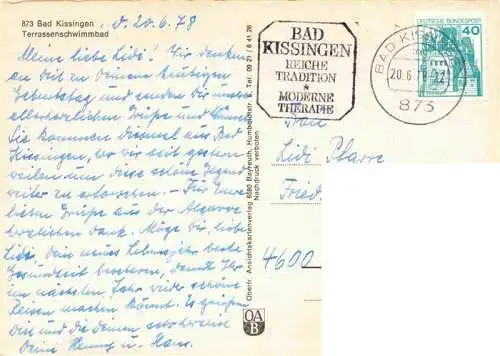 873 Bad Kissingen
Terrassenschwimmbad
d. 20.6.78
Meine liebe Lidi! Wir denken
an Dich zu Deinem heutigen
Geburtstag und senden Dir unsere
allerherzlichen Grüße und
Sie kommen diesmal aus Bad
Kissingen, wo wir seit gestern
weilen um diese schöne Gegend
weiter zu erforschen. – Für Eure
lieben Grüße aus der Algarve
herzlichen Dank. Möge Dir, liebe
Lidi, Dein neues Lebensjahr beste
Gesundheit bescheren, damit Ihr
im nächsten Jahr wieder schöne
Reisen machen könnt. Es grüßen
Dich und die Deinen
Deine u. Hans.
Oberfr. Ansichtskartenverlag 8580 Bayreuth, Humboldtstr. 8, Tel. 09 21 / 6 41 26
Nachdruck verboten
OA
B
BAD
KISSINGEN
REICHE
TRADITION
*
MODERNE
THERAPIE
BAD KISSINGEN
20.6.78
873
DEUTSCHE BUNDESPOST
40
Frau
Lidi Pfarre
Fried
4600